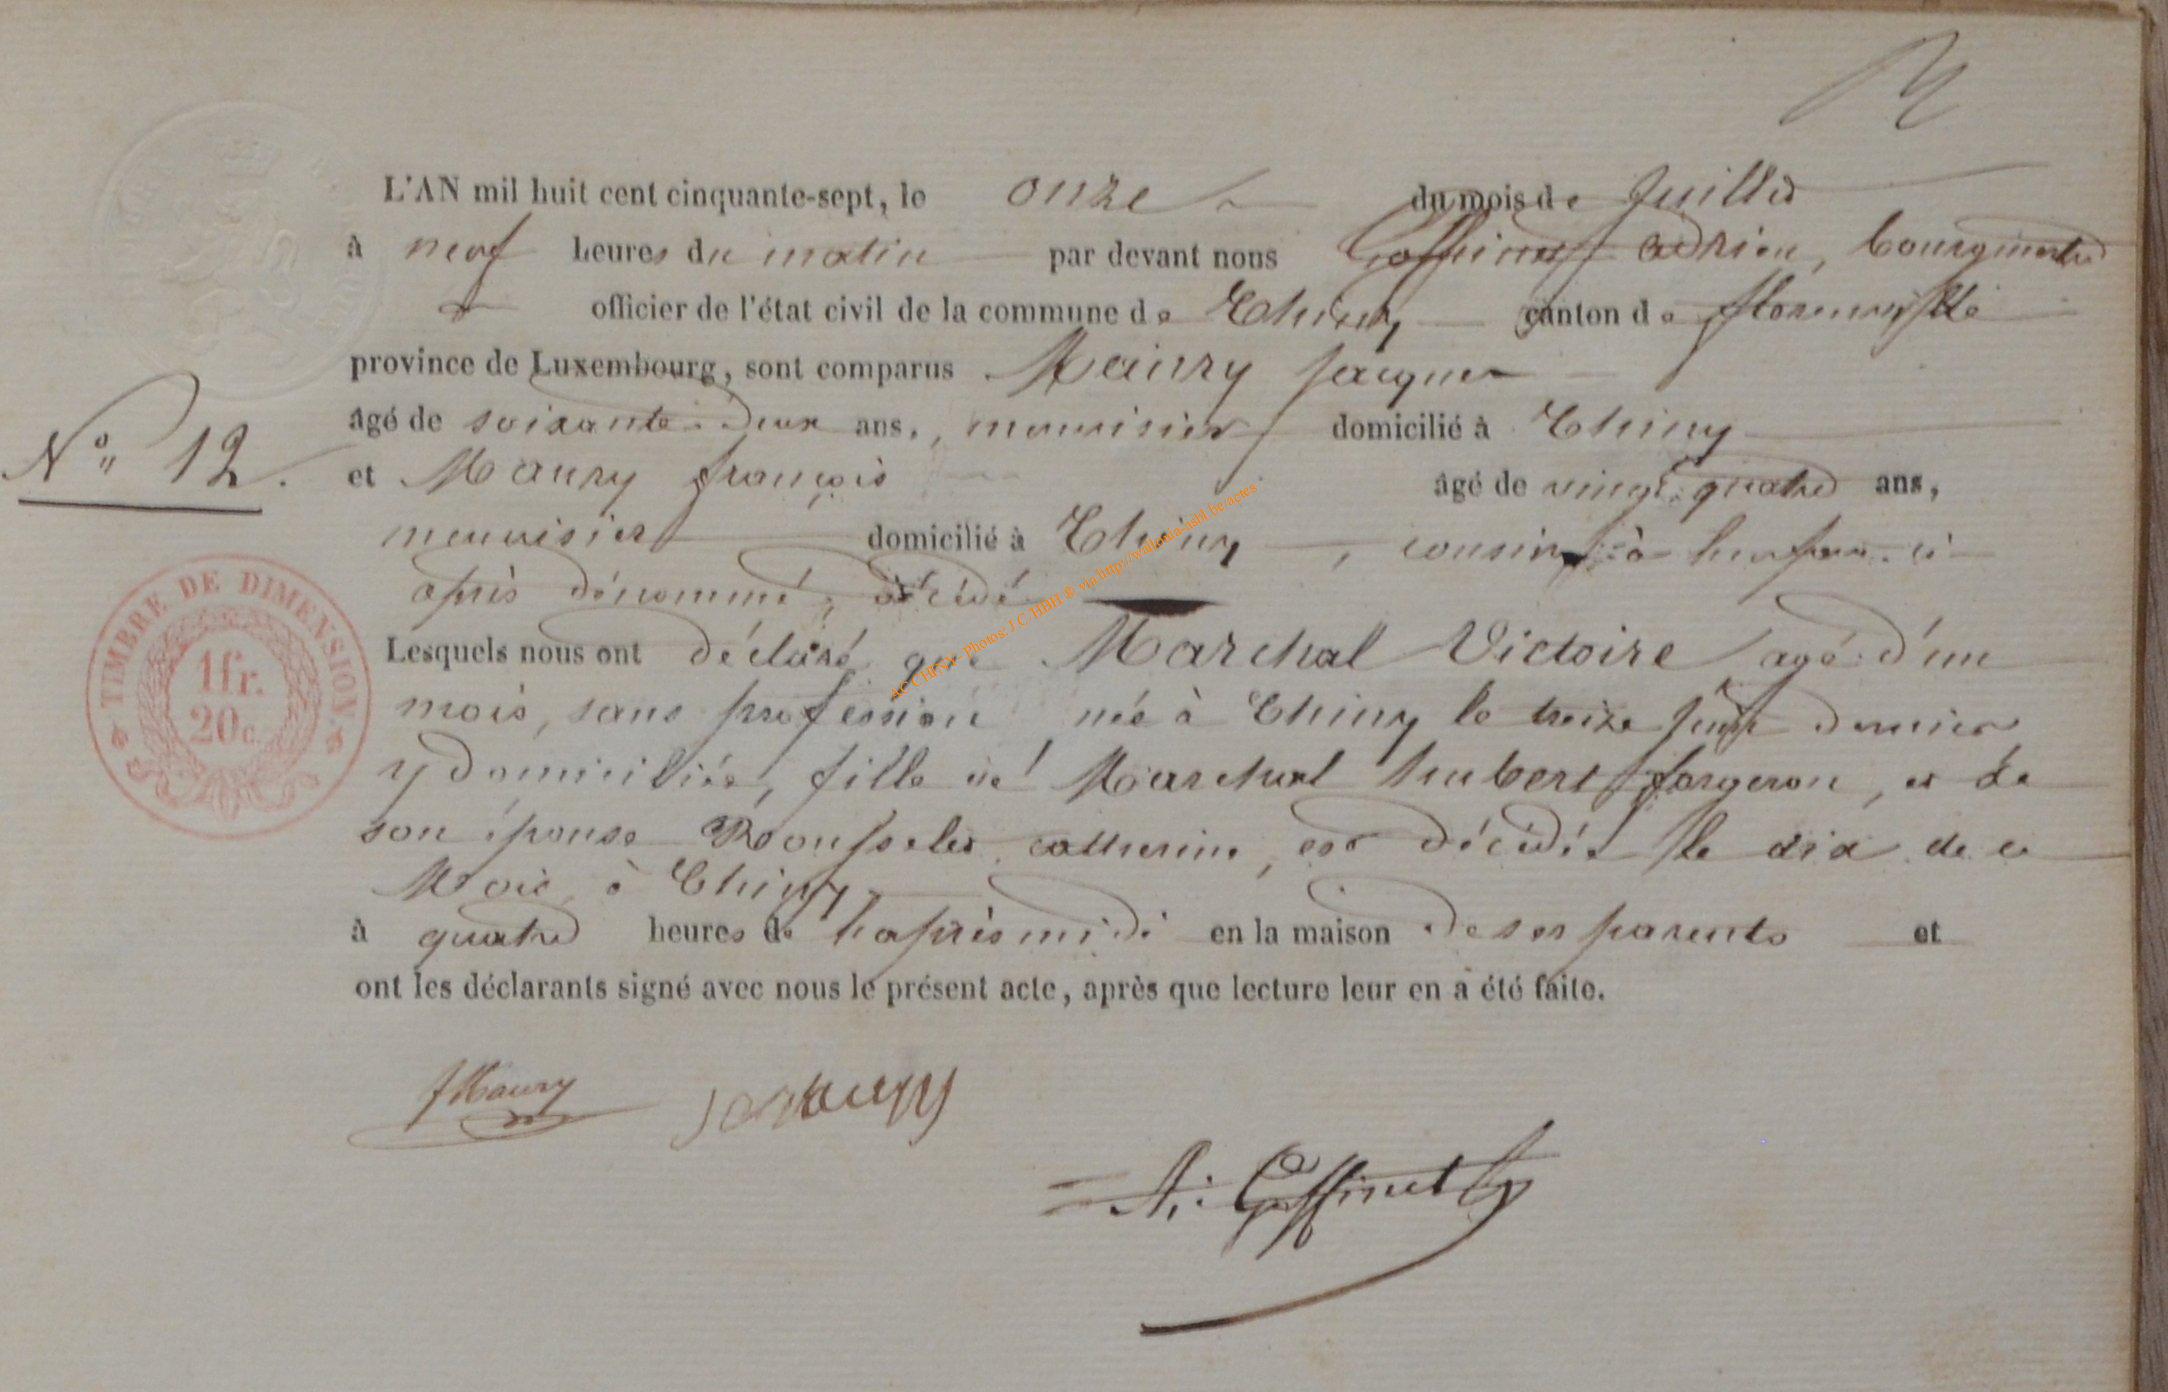 L'AN mil huit cent cinquante-sept, le onze du mois de Juillet
à neuf heures du matin par devant nous Goffinet Adrien, bourgmestre
officier de l'état civil de la commune de Chiny canton de florenville
province de Luxembourg, sont comparus Maury Jacques
âgé de soixante-deux ans, menuisier domicilié à Chiny
N° 12.
et Maury françois âgé de vingt-quatre ans,
menuisier domicilié à Chiny, cousins à ci
après dénommé, décédé
Lesquels nous ont déclaré que Marchal Victoire agé d'un
mois, sans profession née à Chiny le treize Juin dernier
y domiciliée, fille de Marchal hubert forgeron, et de
son épouse Rousselet catherine, est décédée le dix de ce
Mois à Chiny
à quatre heures de l'après midi en la maison de ses parents et
ont les déclarants signé avec nous le présent acte, après que lecture leur en a été faite.
TIMBRE DE DIMENSION.
1fr.
20c.
AC CHINY- Photos: J.C. HBH ® via http://wallonia-asbl.be/actes
fMaury
A. Goffinet